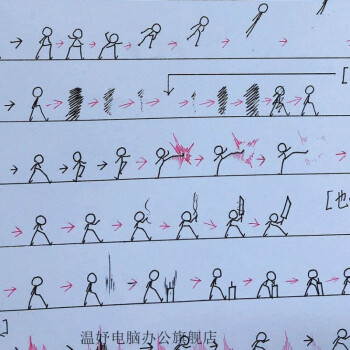 [
[也
]
温好电脑办公旗舰店